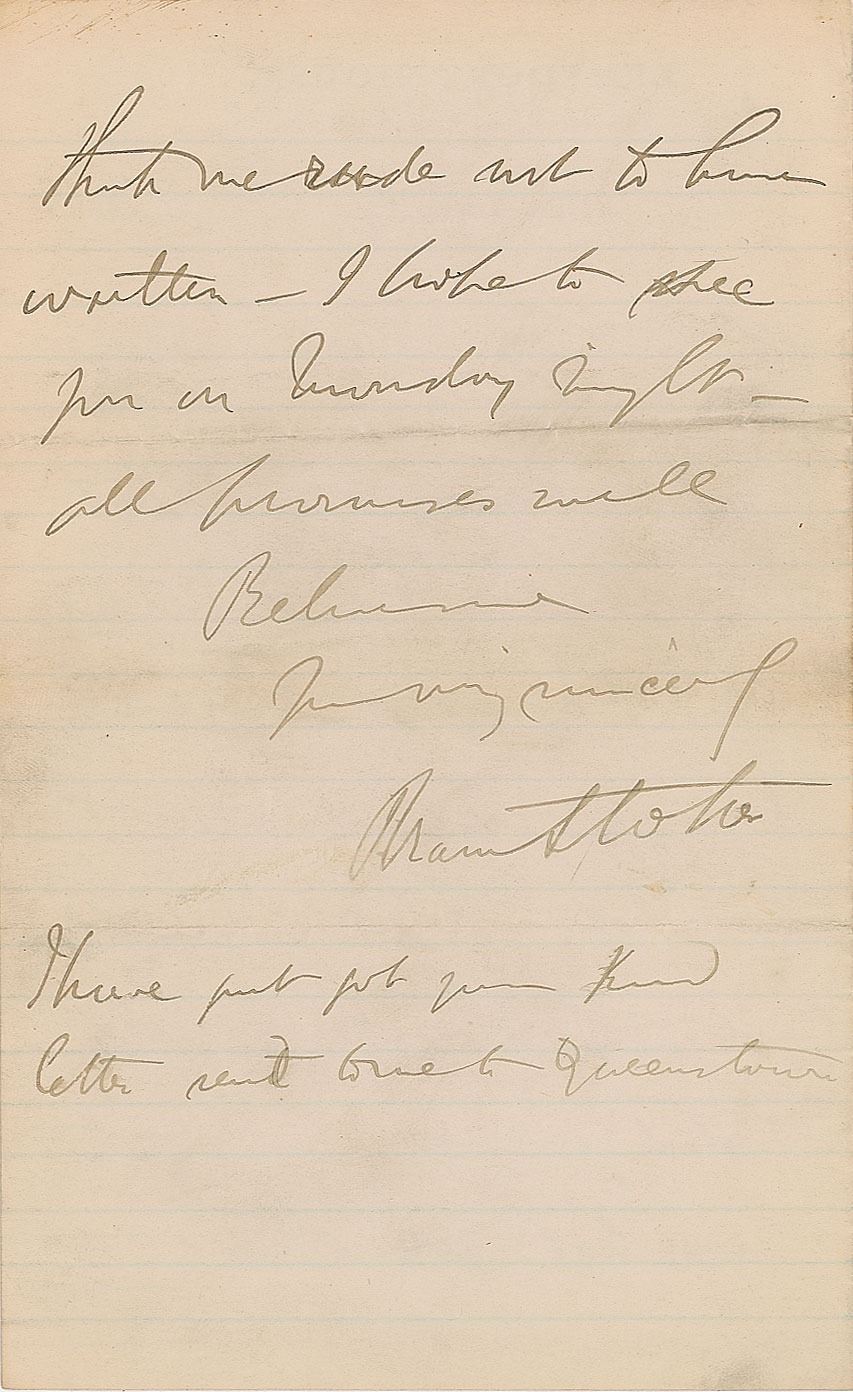 think me rude not to have
written – I hope to see
you on Monday night –
all promises well
Believe me
yours very sincerely
Bram Stoker
I have just got your kind
letter sent to me to Queenstown